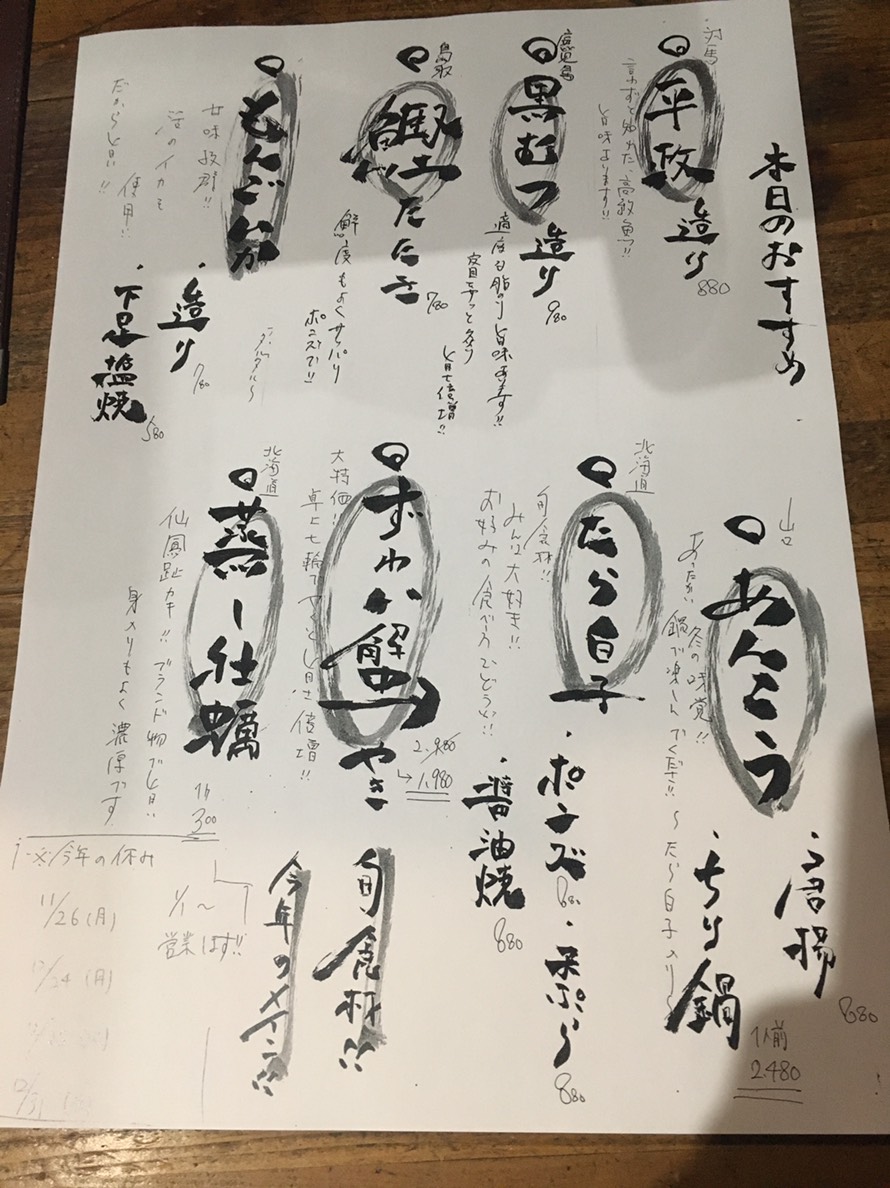 本日のおすすめ
対馬
平政 造り
880
言わずと知れた、高級魚!!
旨味あります!!
鹿児島
黒むつ 造り
980
適度な脂のり旨味あります!!
皮目をサッと炙り
旨さ倍増!!
鳥取
たたき
780
鮮度もよくサッパリ
ポン酢で!!
もんごいか
甘味抜群!!
活のイカを
使用!!
だから旨い!!
・造り
780
・下足塩焼
580
山口
あんこう
冬の味覚!!
あったかい鍋で楽しんでください!! 〜たら白子入り〜
・唐揚
880
・ちり鍋
1人前
2.480
北海道
たら白子
旬食材!!
みんな大好き!!
お好みの食べ方でどうぞ!!
・ポンズ
880
・天ぷら
880
・醤油焼
880
ずわい蟹やき
2.980
↳1.980
大特価!!
卓上七輪でやくと旨さ倍増!!
旬食材!!
今年のメイン!!
北海道
蒸し牡蠣
1ケ
300
仙鳳趾カキ!! ブランド物で旨い!!
身入りもよく濃厚です
今年の休み
11/26(月)
12/24(月)
12/31
1/1〜
営業はず!!